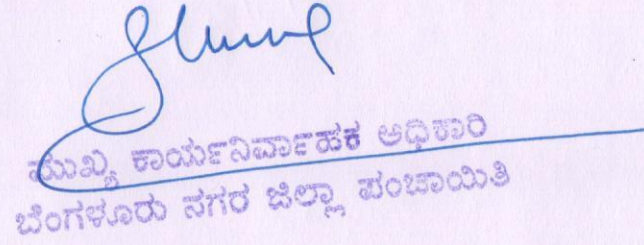 ಮುಖ್ಯ ಕಾರ್ಯನಿರ್ವಾಹಕ ಅಧಿಕಾರಿ
ಬೆಂಗಳೂರು ನಗರ ಜಿಲ್ಲಾ ಪಂಚಾಯಿತಿ